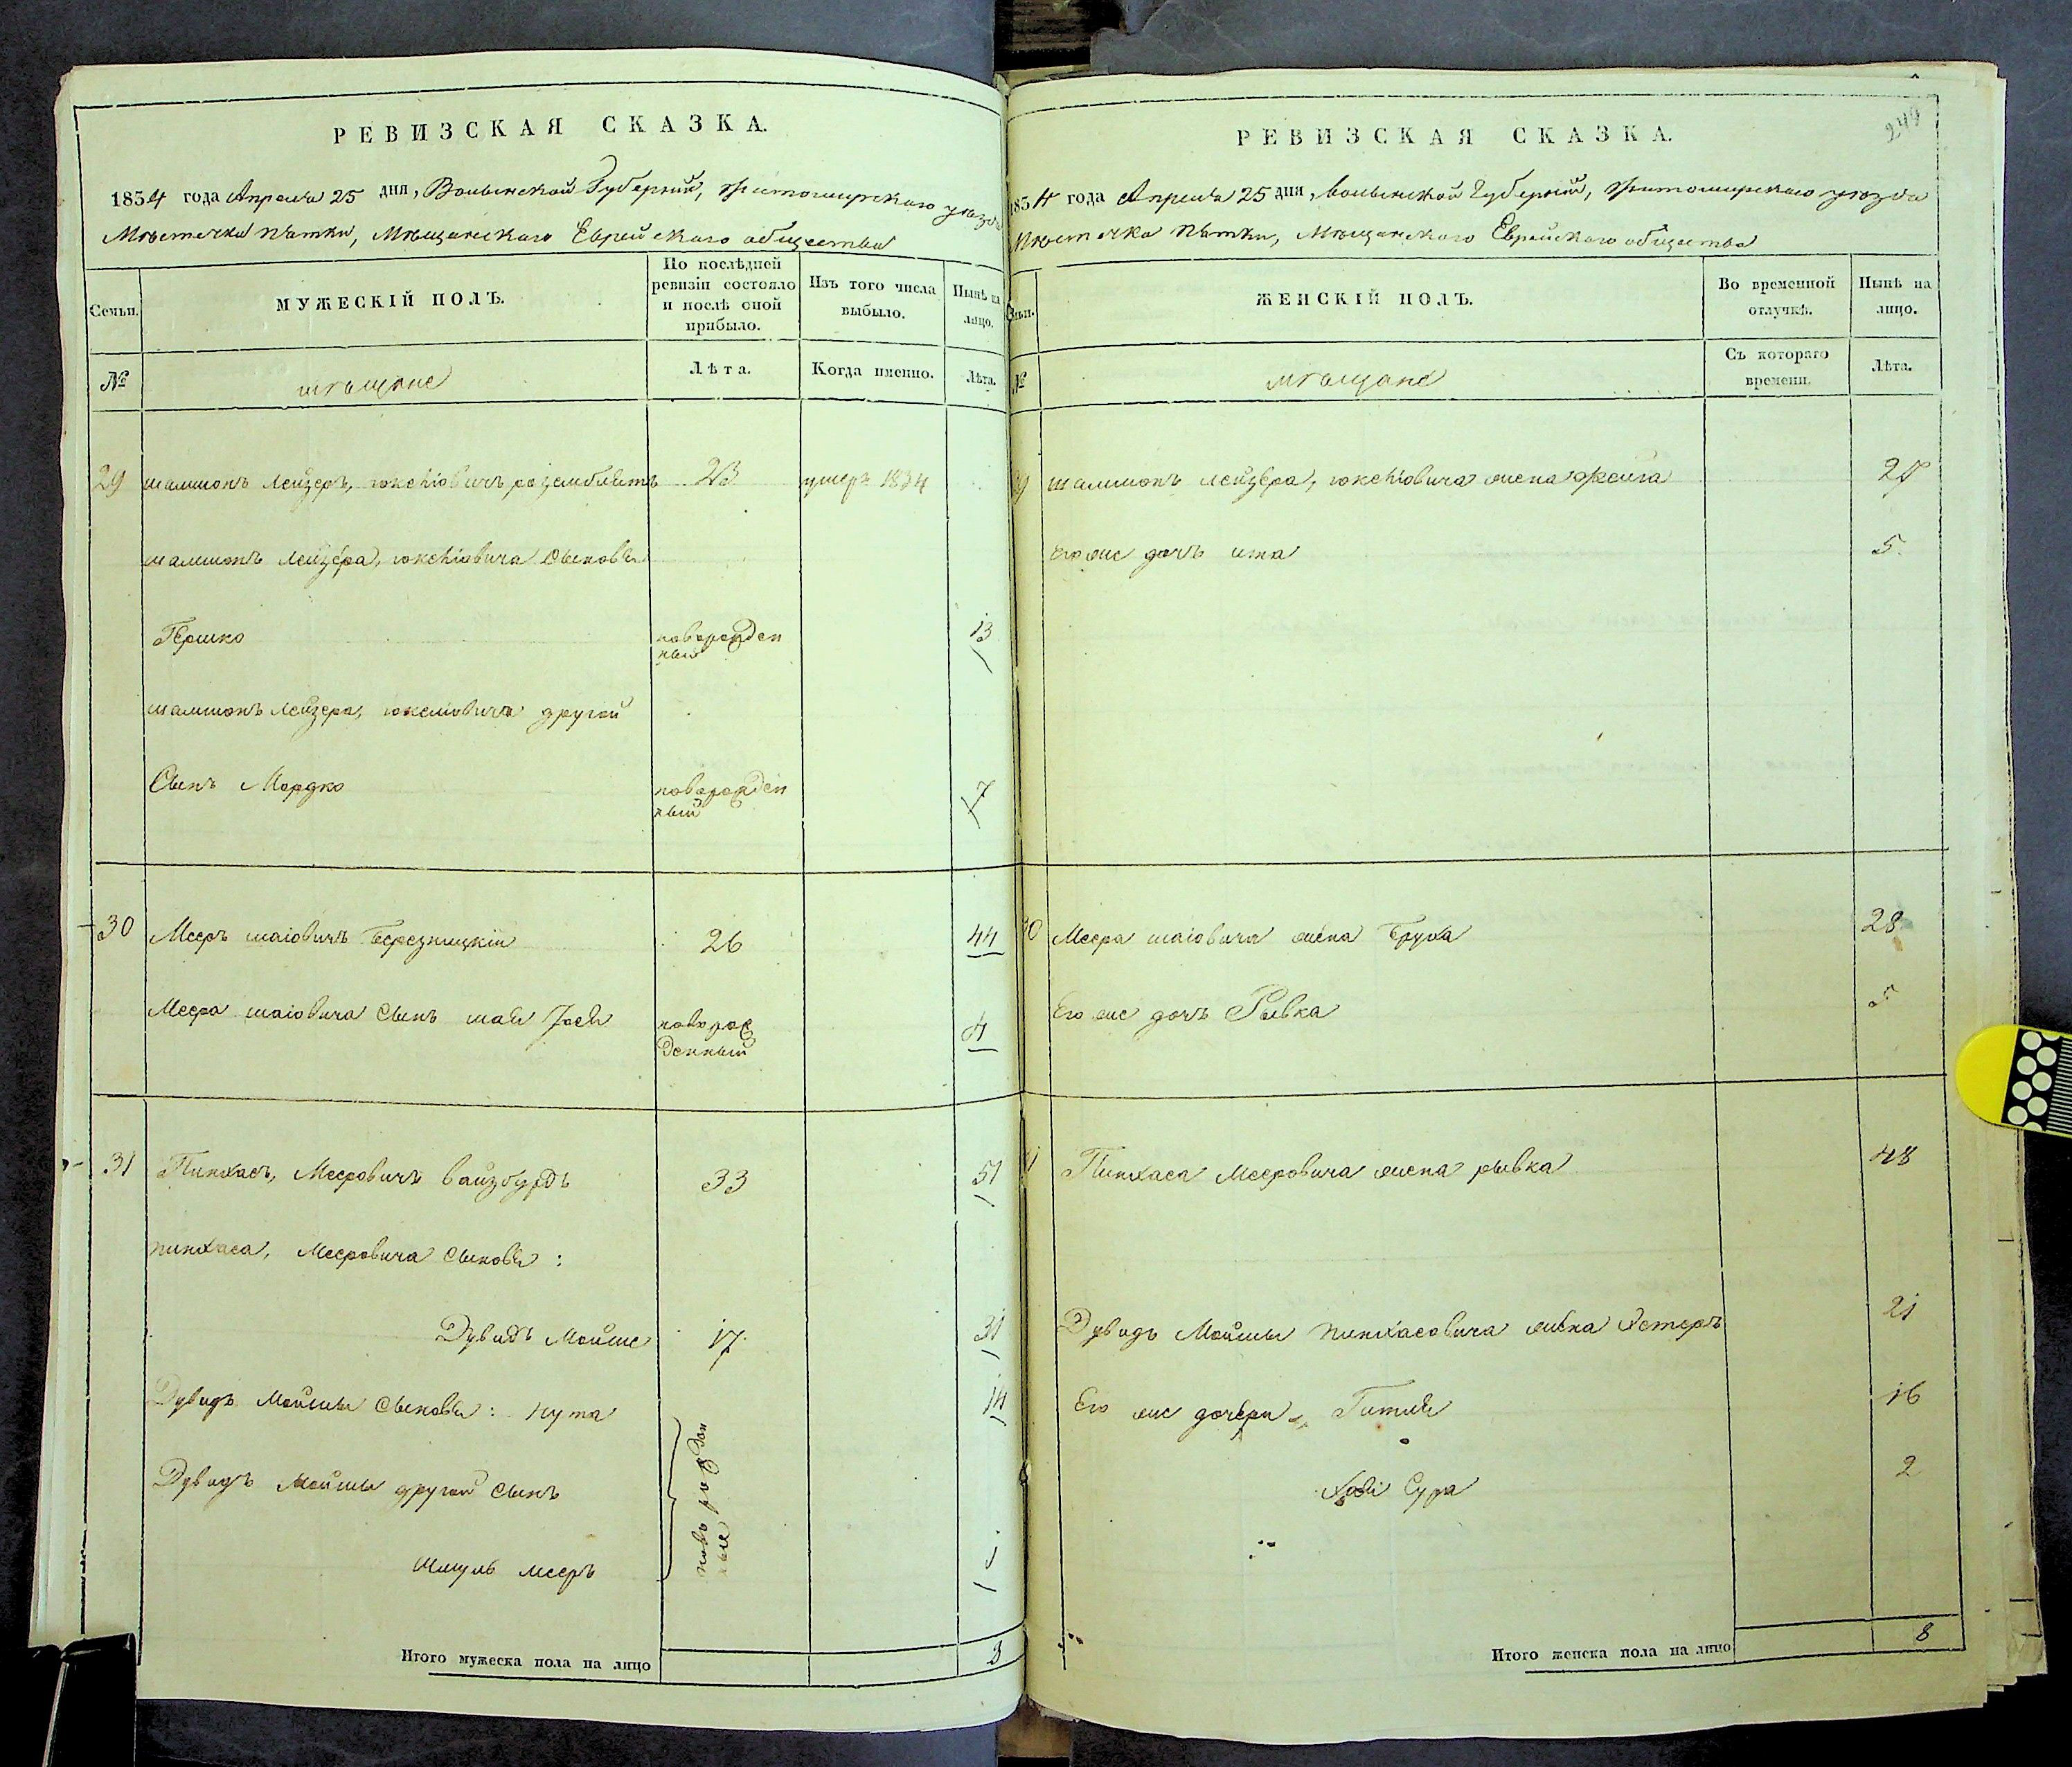 РЕВИЗСКАЯ СКАЗКА.
1854 года Апреля 25 дня, Волынской Губернии, Житомирского уезда
Мѣстечка Пятки, Мѣщанского Еврейского общества
Семьи.
МУЖЕСКІЙ ПОЛЪ.
По послѣдней ревизіи состояло и послѣ оной прибыло.
Изъ того числа выбыло.
Нынѣ на лицо.
№
мѣщане
Лѣта.
Когда именно.
Лѣта.
29 шамшонъ Лейзеръ, юкеліовичъ 23 умеръ 1854
шамшонъ Лейзера, юкеліовича сыновья
Гершко новорожден 13
ный
шамшонъ Лейзера, юкеліовича другой
Сынъ Мордко новорожден 7
ный
30 Мееръ шаіовичъ Березницкій 26 44
Меера шаіовича сынъ новорож 4
денный
31 Пинхасъ, Мееровичъ вайзбурдъ 33 51
пинхаса, Мееровича сыновья :
Дувидъ Мойше 17 31
Дувидъ Мойшы сыновья : нута 14
Дувидъ Мойшы другой сынъ
новъ рожден
ные
Шмуль мееръ 1
Итого мужеска пола на лицо
РЕВИЗСКАЯ СКАЗКА.
1854 года Апреля 25 дня, Волынской Губернии, Житомирского уезда
Мѣстечка Пятки, Мѣщанского Еврейского общества
Семьи.
ЖЕНСКІЙ ПОЛЪ.
Во временной отлучкѣ.
Нынѣ на лицо.
№
мѣщане
Съ котораго времени.
Лѣта.
29 шамшонъ лейзера, юкеліовича жена фейга
Его же дочь ита 5
30 Меера шаіовича жена Бруха 28
Его же дочь Рывка 5
31 Пинхаса Мееровича жена рывка 48
Дувидъ Мойшы пинхасовича жена Эстеръ 21
Его же дочери Гитля 16
Сура 2
Итого женска пола на лицо 8